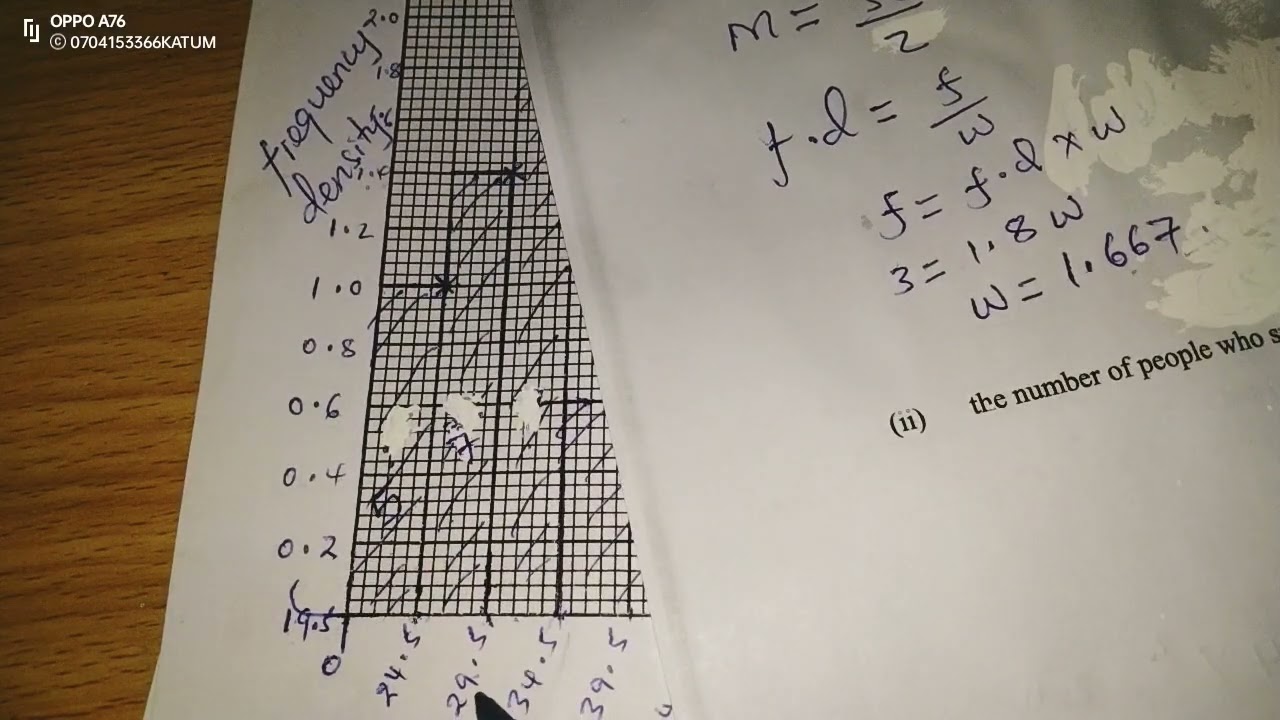 OPPO A76
© 0704153366KATUM
frequency
density
2.0
1.8
1.2
1.0
0.8
0.6
0.4
0.2
19.5
0
24.5
29.5
34.5
39.5
5
M = /2
f.d = f/w
f = f.d x w
3 = 1.8 w
w = 1.667.
(ii) the number of people who